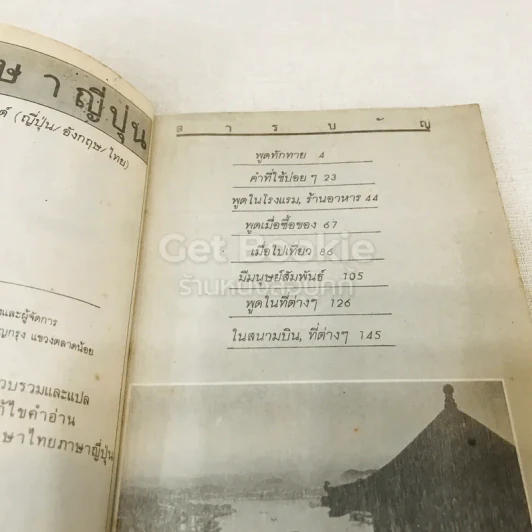 ษาญี่ปุ่น
(ญี่ปุ่น/อังกฤษ/ไทย)
และผู้จัดการ
แขวงตลาดน้อย
วบรวมและแปล
ก้ไขคำอ่าน
าษาไทยภาษาญี่ปุ่น
สารบัญ
พูดทักทาย 4
คำที่ใช้บ่อย ๆ 23
พูดในโรงแรม, ร้านอาหาร 44
พูดเมื่อซื้อของ 67
เมื่อไปเที่ยว 86
มีมนุษย์สัมพันธ์ 105
พูดในที่ต่างๆ 126
ในสนามบิน, ที่ต่างๆ 145
Get Bookie
ร้านหนังสือบุ๊กกี้